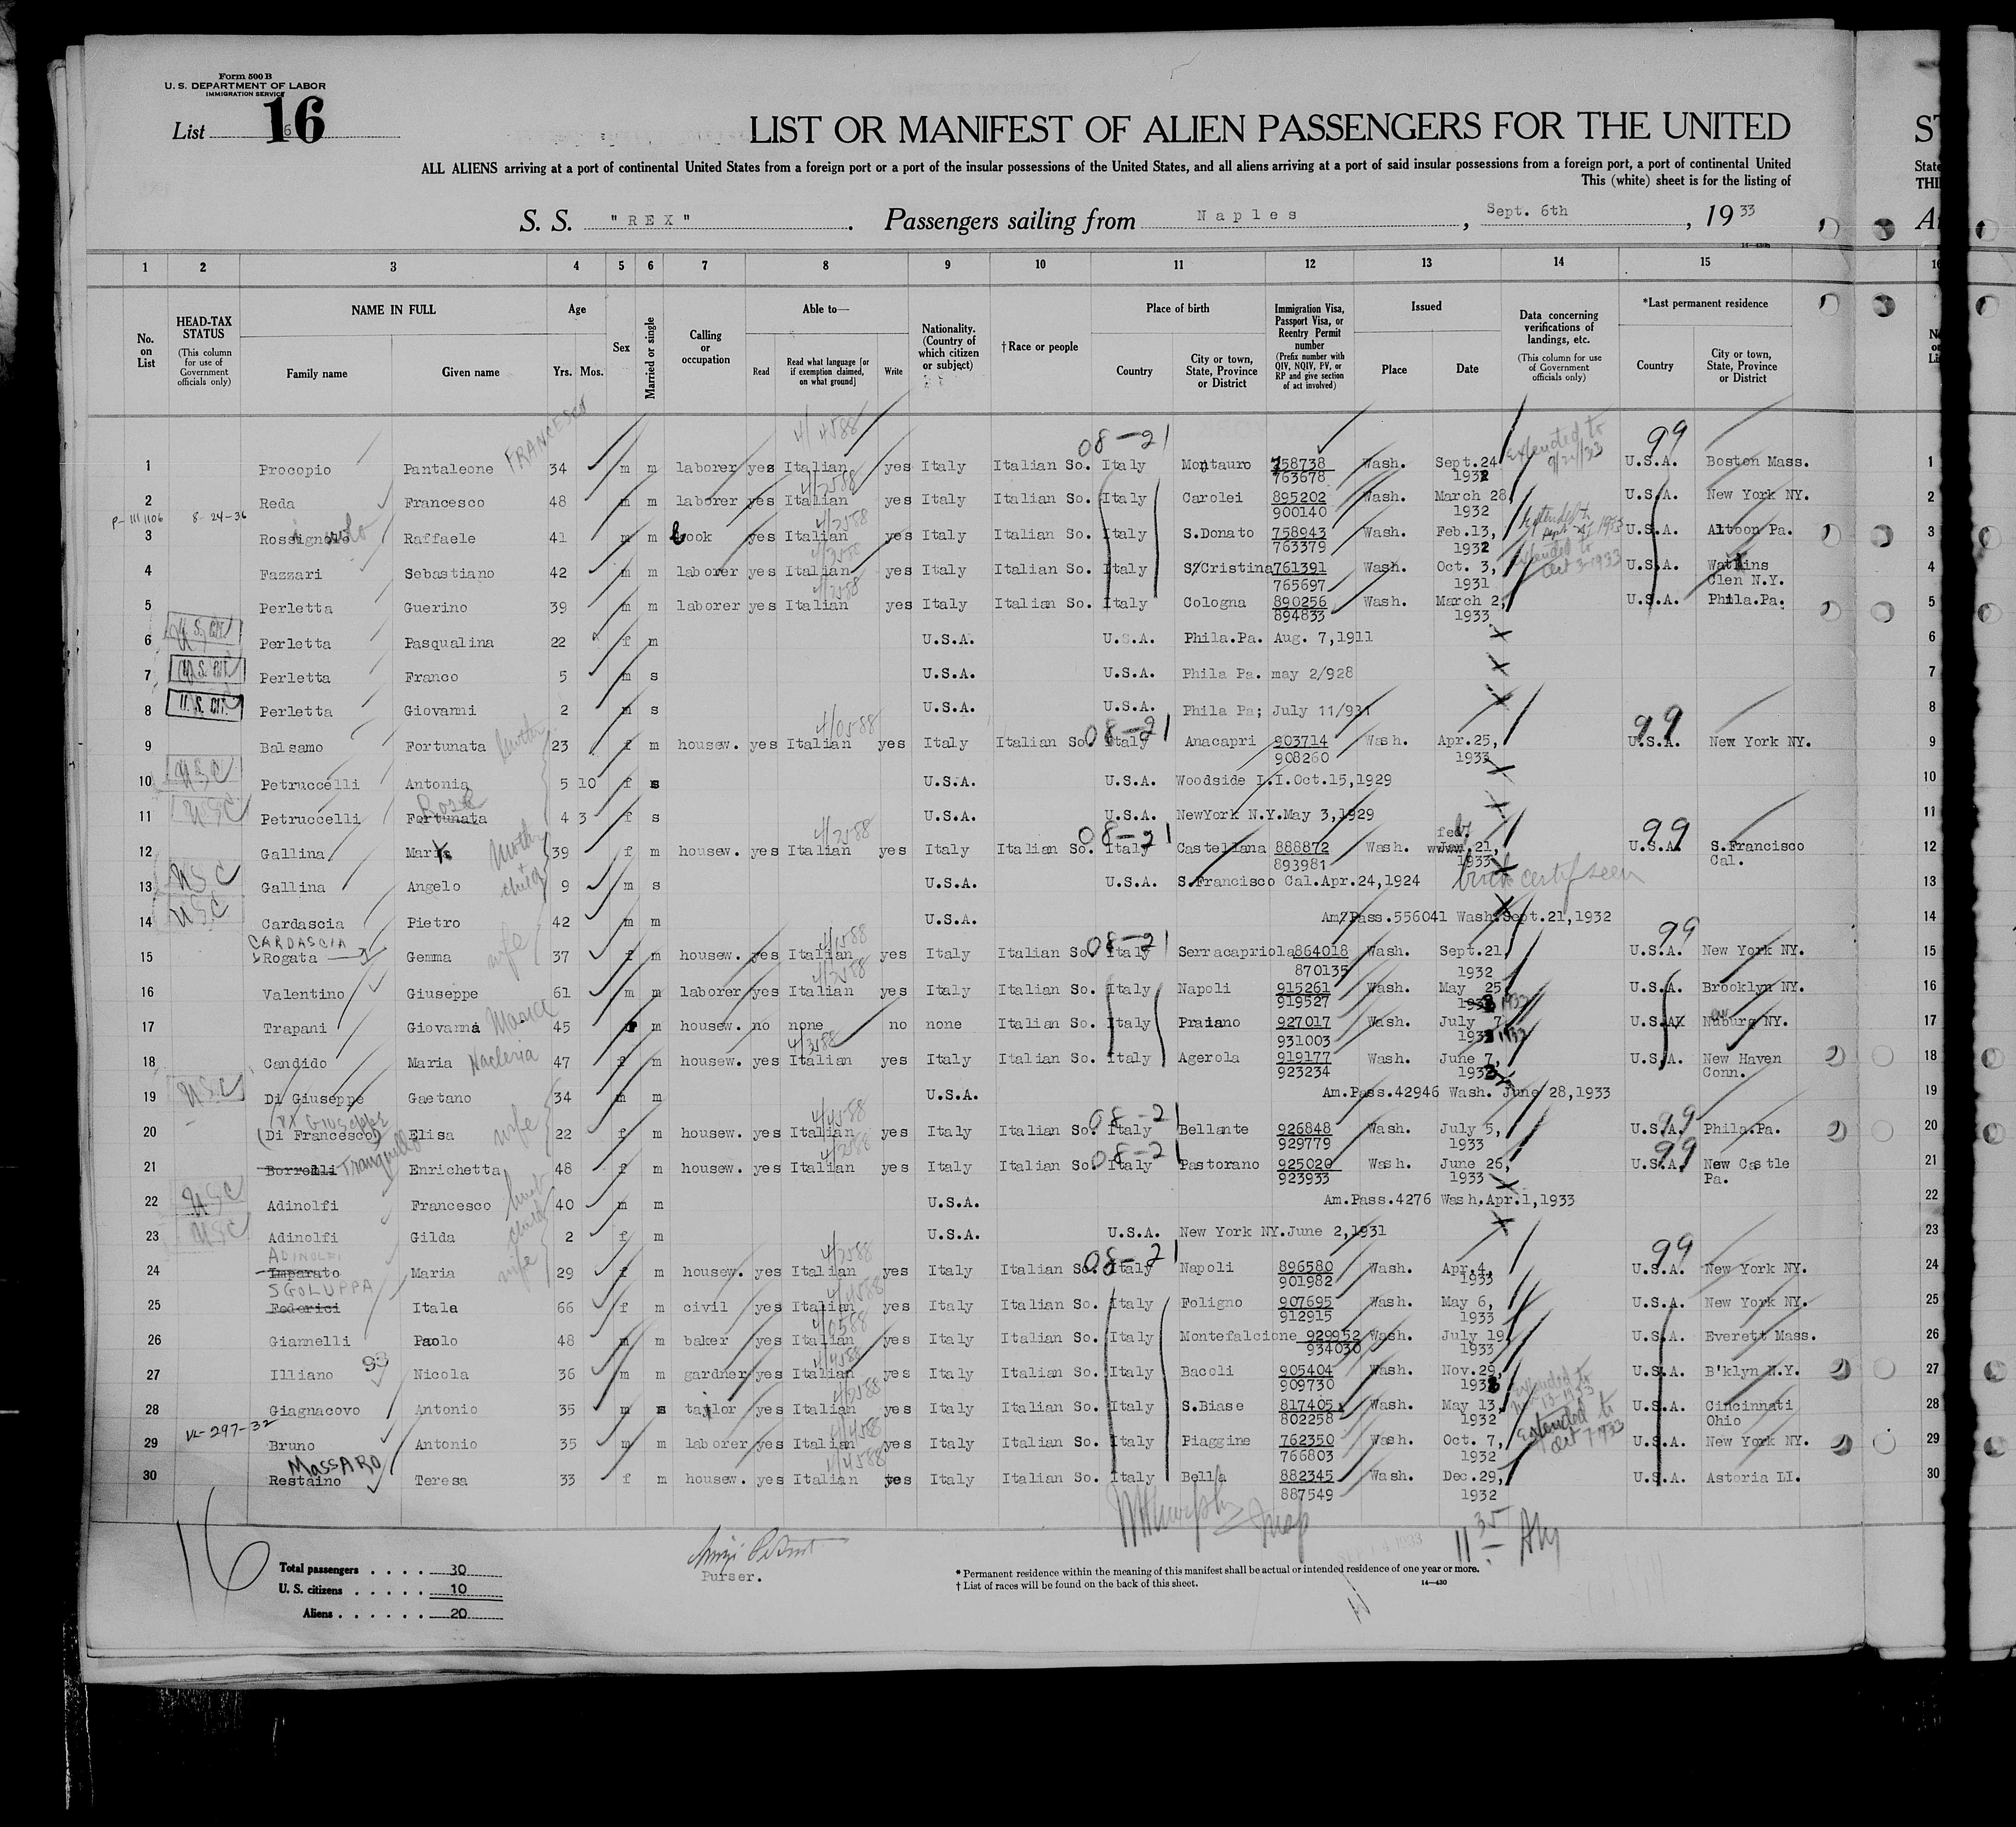 Form 500 B
U. S. DEPARTMENT OF LABOR
IMMIGRATION SERVICE
List 16
LIST OR MANIFEST OF ALIEN PASSENGERS FOR THE UNITED
ALL ALIENS arriving at a port of continental United States from a foreign port or a port of the insular possessions of the United States, and all aliens arriving at a port of said insular possessions from a foreign port, a port of continental United
This (white) sheet is for the listing of
S. S. "REX". Passengers sailing from Naples, Sept. 6th, 1933
1 2 3 4 5 6 7 8 9 10 11 12 13 14 15
No. on List
HEAD-TAX STATUS (This column for use of Government officials only)
NAME IN FULL Family name Given name
Age Yrs. Mos.
Sex
Married or single
Calling or occupation
Able to— Read Read what language [or if exemption claimed, on what ground] Write
Nationality. (Country of which citizen or subject)
†Race or people
Place of birth Country City or town, State, Province or District
Immigration Visa, Passport Visa, or Reentry Permit number (Prefix number with QIV, NQIV, PV, or RP and give section of act involved)
Issued Place Date
Data concerning verifications of landings, etc. (This column for use of Government officials only)
*Last permanent residence Country City or town, State, Province or District
1 Procopio Pantaleone FRANCESCO 34 m m laborer yes Italian yes Italy Italian So. Italy Montauro 758738 763678 Wash. Sept.24 1932 Extended to 9/24/33 U.S.A. Boston Mass. 1
2 Reda Francesco 48 m m laborer yes Italian yes Italy Italian So. Italy Carolei 895202 900140 Wash. March 28, 1932 U.S.A. New York NY. 2
P-1111106 8-24-36
3 Rossignolo Raffaele 41 m m cook yes Italian yes Italy Italian So. Italy S.Donato 758943 763379 Wash. Feb.13, 1932 U.S.A. Altoon Pa. 3
4 Fazzari Sebastiano 42 m m laborer yes Italian yes Italy Italian So. Italy S/Cristina 761391 765697 Wash. Oct. 3, 1931 Extended to Oct 3-1933 U.S.A. Watkins Glen N.Y. 4
5 Perletta Guerino 39 m m laborer yes Italian yes Italy Italian So. Italy Cologna 890256 894833 Wash. March 2, 1933 U.S.A. Phila.Pa. 5
6 U.S.CIT. Perletta Pasqualina 22 f m U.S.A. U.S.A. Phila.Pa. Aug. 7,1911 6
7 U.S.CIT. Perletta Franco 5 m s U.S.A. U.S.A. Phila Pa. may 2/928 7
8 U.S.CIT. Perletta Giovanni 2 m s U.S.A. U.S.A. Phila Pa; July 11/931 8
9 Balsamo Fortunata Mother 23 f m housew. yes Italian yes Italy Italian So. Italy Anacapri 903714 908260 Wash. Apr.25, 1933 U.S.A. New York NY. 9
10 USC Petruccelli Antonia 5 10 f s U.S.A. U.S.A. Woodside L.I.Oct.15,1929 10
11 USC Petruccelli Fortunata Rose 4 3 f s U.S.A. U.S.A. NewYork N.Y.May 3,1929 11
12 Gallina Maria Mother 39 f m housew. yes Italian yes Italy Italian So. Italy Castellana 888872 893981 Wash. feb. 21, 1933 U.S.A. S.Francisco Cal. 12
13 USC Gallina Angelo child 9 m s U.S.A. U.S.A. S.Francisco Cal.Apr.24,1924 birth certif seen 13
14 USC Cardascia Pietro 42 m m U.S.A. Am/Pass.556041 Wash.Sept.21,1932 14
CARDASCIA
15 Rogata Gemma wife 37 f m housew. yes Italian yes Italy Italian So. Italy Serracapriola 864018 870135 Wash. Sept.21 1932 U.S.A. New York NY. 15
16 Valentino Giuseppe 61 m m laborer yes Italian yes Italy Italian So. Italy Napoli 915261 919527 Wash. May 25 1933 U.S.A. Brooklyn NY. 16
17 Trapani Giovanna 45 f m housew. no none no none Italian So. Italy Praiano 927017 931003 Wash. July 7 1933 U.S.A. Nuburg NY. 17
18 Candido Maria 47 f m housew. yes Italian yes Italy Italian So. Italy Agerola 919177 923234 Wash. June 7, 1933 U.S.A. New Haven Conn. 18
19 USC Di Giuseppe Gaetano 34 m m U.S.A. Am.Pass.42946 Wash. June 28,1933 19
Di Giuseppe
20 (Di Francesco) Elisa wife 22 f m housew. yes Italian yes Italy Italian So. Italy Bellante 926848 929779 Wash. July 5, 1933 U.S.A. Phila.Pa. 20
21 Borrelli Tranquillo Enrichetta 48 f m housew. yes Italian yes Italy Italian So. Italy Pastorano 925020 923933 Wash. June 26, 1933 U.S.A. New Castle Pa. 21
22 USC Adinolfi Francesco 40 m m U.S.A. Am.Pass.4276 Wash.Apr.1,1933 22
23 USC Adinolfi Gilda child 2 f m U.S.A. U.S.A. New York NY.June 2,1931 23
ADINOLFI
24 Imparato Maria wife 29 f m housew. yes Italian yes Italy Italian So. Italy Napoli 896580 901982 Wash. Apr.4, 1933 U.S.A. New York NY. 24
SGOLUPPA
25 Federici Itala 66 f m civil yes Italian yes Italy Italian So. Italy Foligno 907695 912915 Wash. May 6, 1933 U.S.A. New York NY. 25
26 Giannelli Paolo 48 m m baker yes Italian yes Italy Italian So. Italy Montefalcione 929952 934030 Wash. July 19 1933 U.S.A. Everett Mass. 26
27 Illiano Nicola 36 m m gardner yes Italian yes Italy Italian So. Italy Bacoli 905404 909730 Wash. Nov.29, U.S.A. B'klyn N.Y. 27
28 Giagnacovo Antonio 35 m s tailor yes Italian yes Italy Italian So. Italy S.Biase 817405 802258 Wash. May 13, 1932 U.S.A. Cincinnati Ohio 28
VL-297-32
29 Bruno Antonio 35 m m laborer yes Italian yes Italy Italian So. Italy Piaggine 762350 766803 Wash. Oct. 7, 1932 Extended to Oct 7 1933 U.S.A. New York NY. 29
MASSARO
30 Restaino Teresa 33 f m housew. yes Italian yes Italy Italian So. Italy Bella 882345 887549 Wash. Dec.29, 1932 U.S.A. Astoria LI. 30
16
Total passengers . . . . 30
U. S. citizens . . . . . 10
Aliens . . . . . . 20
Purser.
SEP 14 1933
11 35 AM
* Permanent residence within the meaning of this manifest shall be actual or intended residence of one year or more.
† List of races will be found on the back of this sheet.
14—430